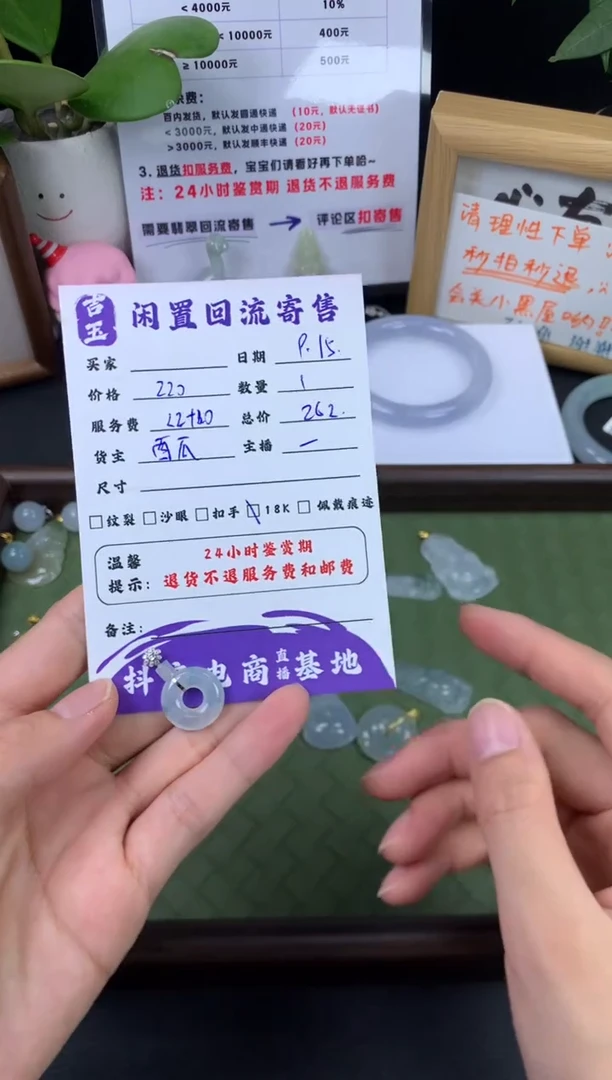 < 4000元 10%
< 10000元 400元
≥ 10000元 500元
快费:
百内发货，默认发圆通快递 (10元，默认无证书)
< 3000元，默认发中通快递 (20元)
> 3000元，默认发顺丰快递 (20元)
3. 退货扣服务费，宝宝们请看好再下单哈~
注：24小时鉴赏期 退货不退服务费
需要翡翠回流寄售 → 评论区扣寄售
请理性下单
秒拍秒退
会关小黑屋哟
吉玉 闲置回流寄售
买家 日期 9.15.
价格 220 数量 1
服务费 22+20 总价 262.
货主 西瓜 主播 一
尺寸
纹裂 沙眼 扣手 18K 佩戴痕迹
温馨提示: 24小时鉴赏期
退货不退服务费和邮费
备注:
抖 电商直播基地